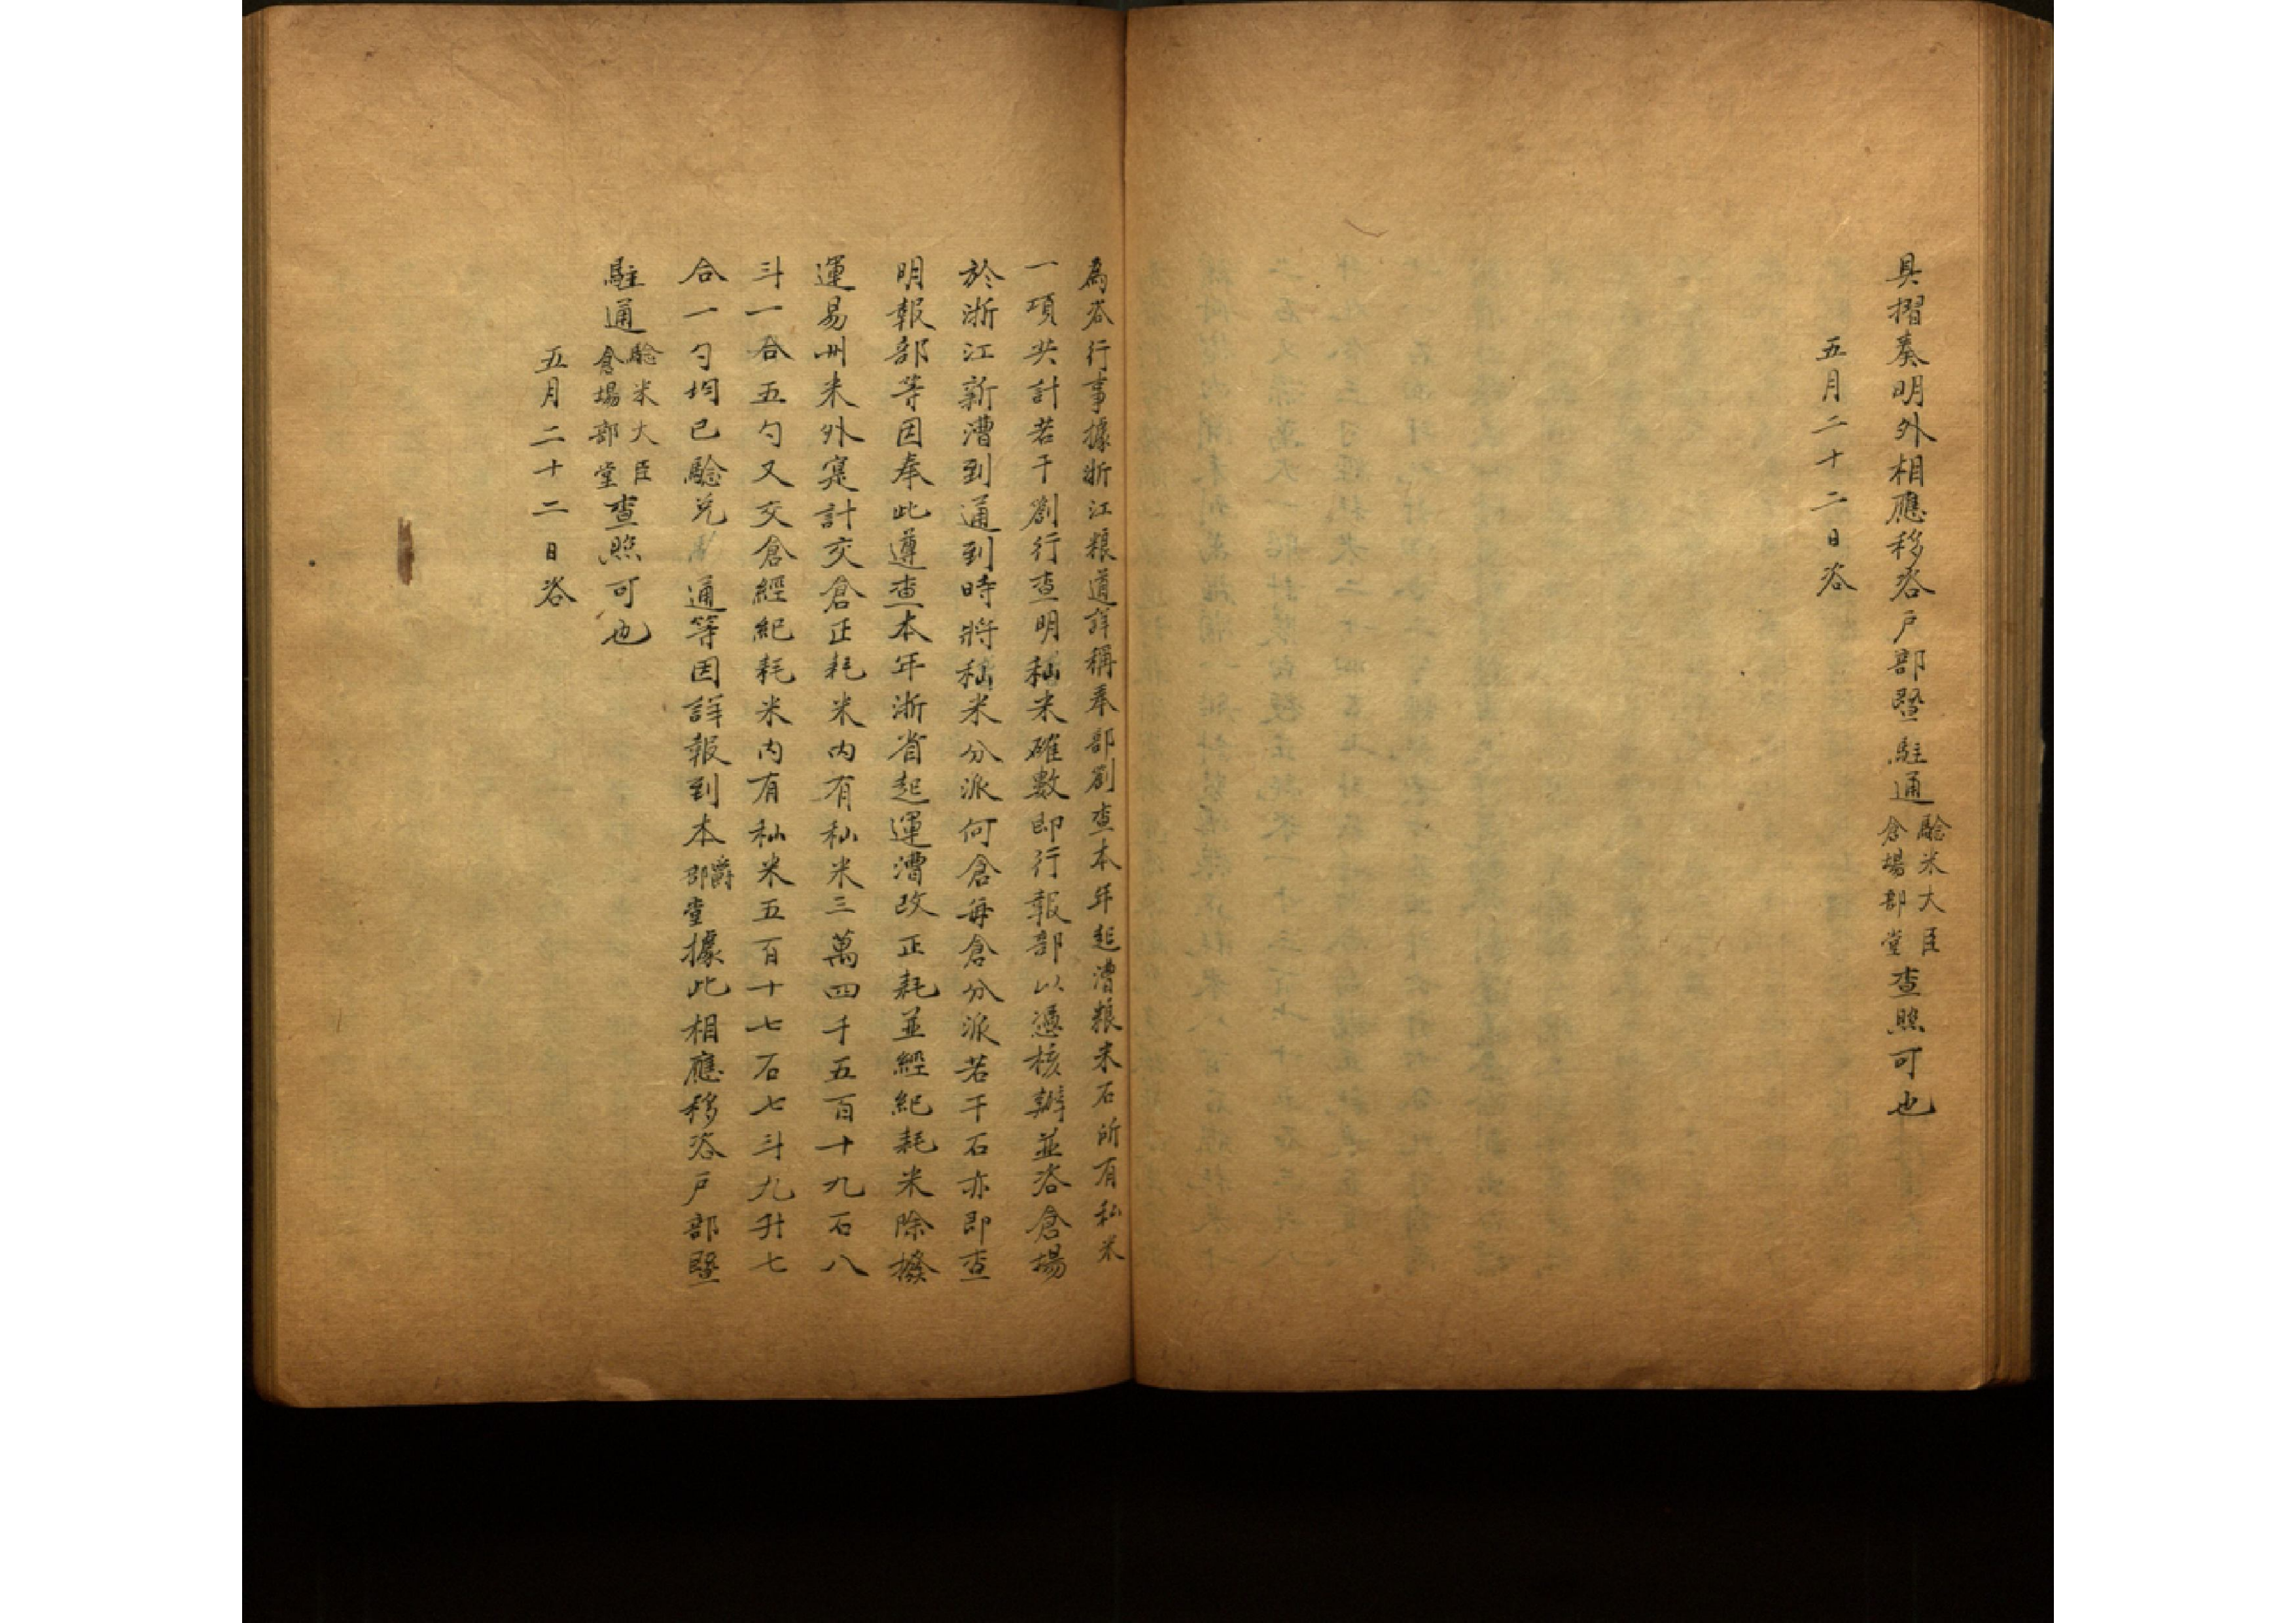 具摺奏明外相應移咨戶部暨駐通驗米大臣倉場部堂查照可也
五月二十二日咨
為咨行事據浙江粮道詳稱奉部劄查本年起漕粮米石所有秈米
一項共計若干劄行查明秈米確數即行報部以憑核辦並咨倉場
於浙江新漕到通到時將秈米分派何倉每倉分派若干石亦即查
明報部等因奉此遵查本年浙省起運漕改正耗並經紀耗米除撥
運易州米外寔計交倉正耗米內有秈米三萬四千五百十九石八
斗一合五勺又交倉經紀耗米內有秈米五百十七石七斗九升七
合一勺均已驗兌通等因詳報到本爵部堂據此相應移咨戶部暨
駐通驗米大臣倉場部堂查照可也
五月二十二日咨